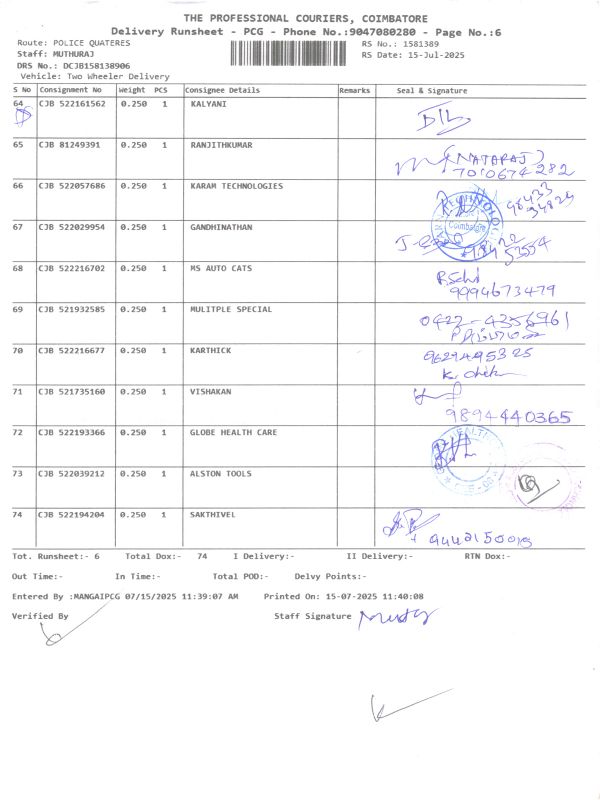 THE PROFESSIONAL COURIERS, COIMBATORE
Delivery Runsheet - PCG - Phone No.:9047080280 - Page No.:6
Route: POLICE QUATERES RS No.: 1581389
Staff: MUTHURAJ RS Date: 15-Jul-2025
DRS No.: DCJB158138906
Vehicle: Two Wheeler Delivery
S No Consignment No Weight PCS Consignee Details Remarks Seal & Signature
64 CJB 522161562 0.250 1 KALYANI
65 CJB 81249391 0.250 1 RANJITHKUMAR
(NATARAJ)
7010674282
66 CJB 522057686 0.250 1 KARAM TECHNOLOGIES
Coimbatore
67 CJB 522029954 0.250 1 GANDHINATHAN
68 CJB 522216702 0.250 1 MS AUTO CATS
9994673479
69 CJB 521932585 0.250 1 MULITPLE SPECIAL
0422-4356961
70 CJB 522216677 0.250 1 KARTHICK
9629495325
71 CJB 521735160 0.250 1 VISHAKAN
9894440365
72 CJB 522193366 0.250 1 GLOBE HEALTH CARE
73 CJB 522039212 0.250 1 ALSTON TOOLS
74 CJB 522194204 0.250 1 SAKTHIVEL
Tot. Runsheet:- 6 Total Dox:- 74 I Delivery:- II Delivery:- RTN Dox:-
Out Time:- In Time:- Total POD:- Delvy Points:-
Entered By :MANGAIPCG 07/15/2025 11:39:07 AM Printed On: 15-07-2025 11:40:08
Verified By Staff Signature